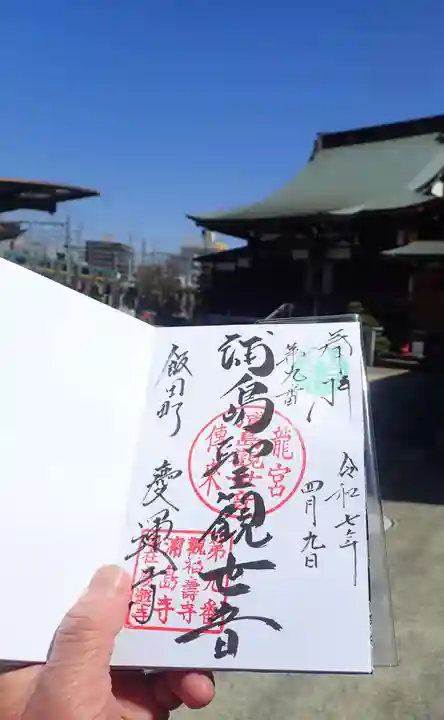 奉拝
第九番
令和七年
四月九日
浦島聖観世音
龍宮
浦島観世音
傳来
第九番
観福壽寺
浦島寺
在慶運寺
飯田町
慶運寺